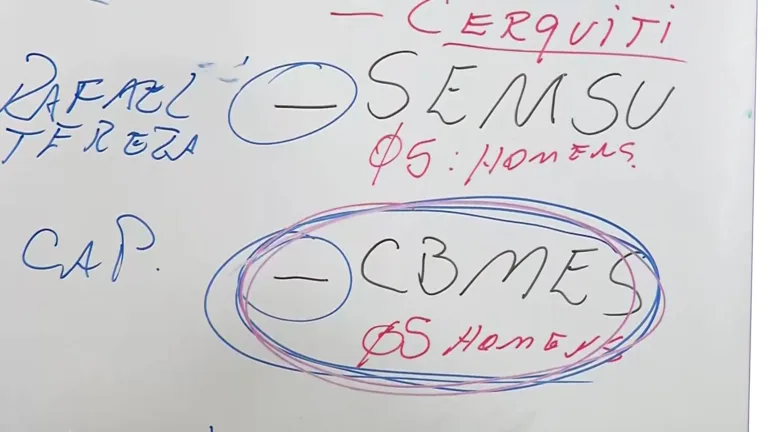 — CERQUITI
RAFAEL — SEMSU
TEREZA Ø5: HOMENS.
CAP. — CBMES
Ø5 HOMENS